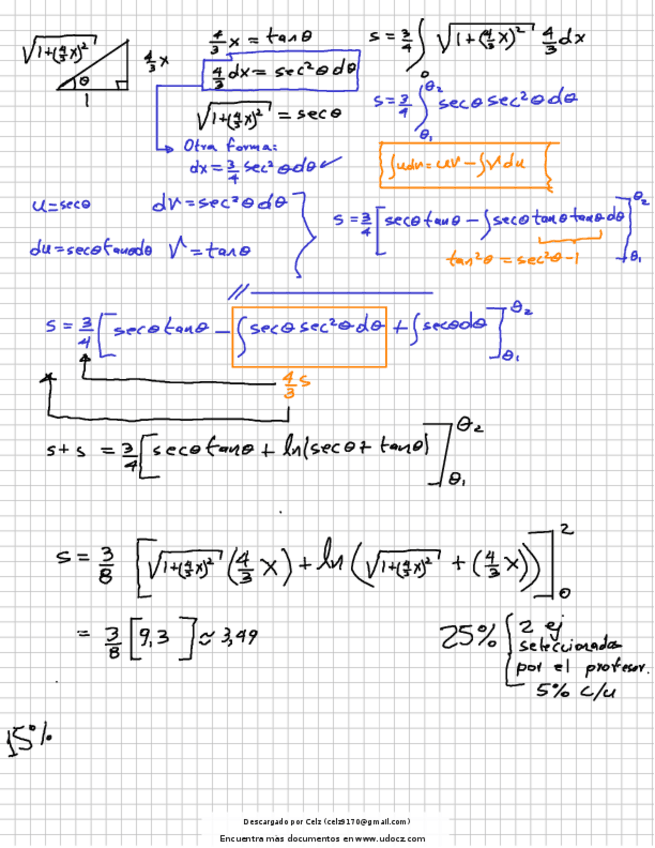 √(1+(4/3 x)²)   4/3 x   θ   1
4/3 x = tanθ
4/3 dx = sec²θ dθ
√(1+(4/3 x)²) = secθ
Otra forma:
dx = 3/4 sec²θ dθ ✓
s = 3/4 ∫₀ √(1+(4/3 x)²) 4/3 dx
s = 3/4 ∫_θ₁^θ₂ secθ sec²θ dθ
∫udv = uv − ∫vdu
u = secθ   dv = sec²θ dθ
du = secθ tanθ dθ   v = tanθ
s = 3/4 [secθ tanθ − ∫secθ tanθ tanθ dθ]_θ₁^θ₂
tan²θ = sec²θ − 1
//
s = 3/4 [secθ tanθ − ∫secθ sec²θ dθ + ∫secθ dθ]_θ₁^θ₂
4/3 s
s + s = 3/4 [secθ tanθ + ln(secθ + tanθ)]_θ₁^θ₂
s = 3/8 [√(1+(4/3 x)²) (4/3 x) + ln(√(1+(4/3 x)²) + (4/3 x))]₀²
= 3/8 [9,3] ≈ 3,49
25% { 2 ej
seleccionados
por el profesor.
5% c/u
15%
Descargado por Celz (celz9170@gmail.com)
Encuentra más documentos en www.udocz.com